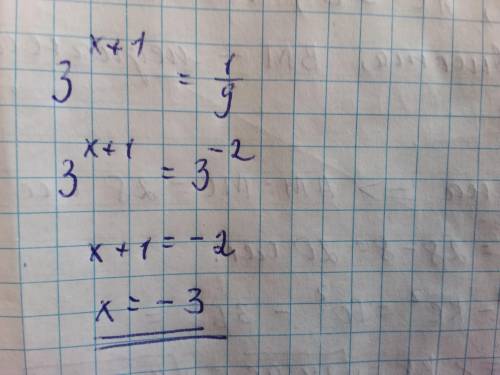 3^{x+1} = 1/9
3^{x+1} = 3^{-2}
x + 1 = -2
x = -3